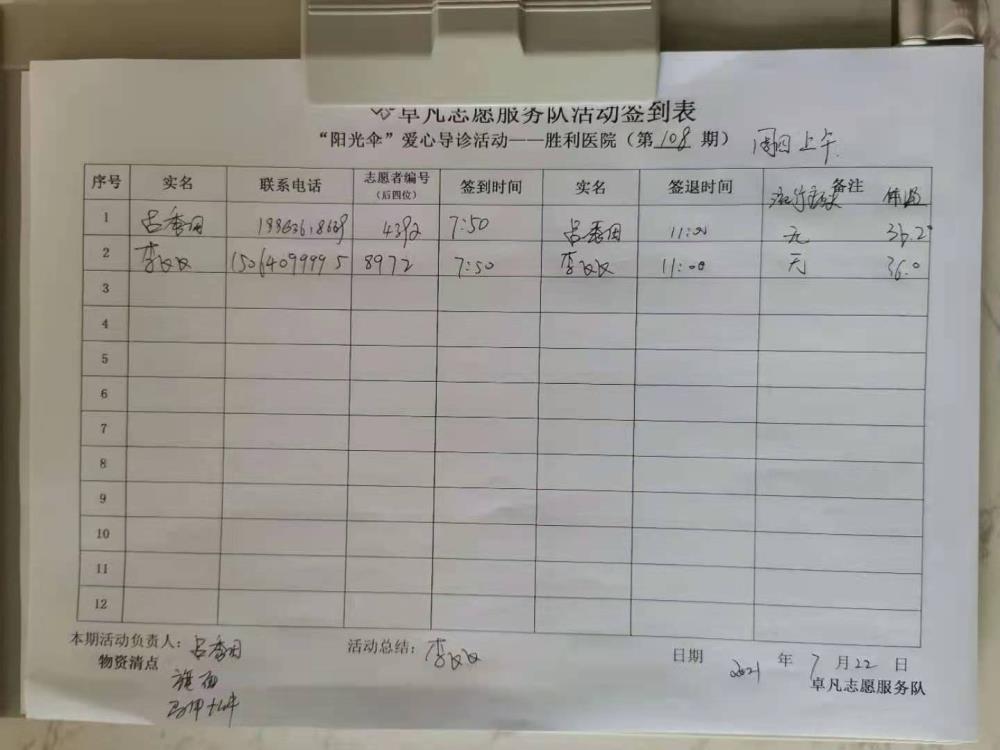 卓凡志愿服务队活动签到表
“阳光伞”爱心导诊活动——胜利医院（第 108 期） 周四上午
序号 实名 联系电话 志愿者编号（后四位） 签到时间 实名 签退时间 备注 体温
1 吕秀田 4392 7:50 吕秀田 11:00 无 36.2°
2 李文文 15064099995 8972 7:50 李文文 11:00 无 36.0
3
4
5
6
7
8
9
10
11
12
本期活动负责人：吕秀田 活动总结：李文文 日期 2021 年 7 月 22 日
物资清点 卓凡志愿服务队